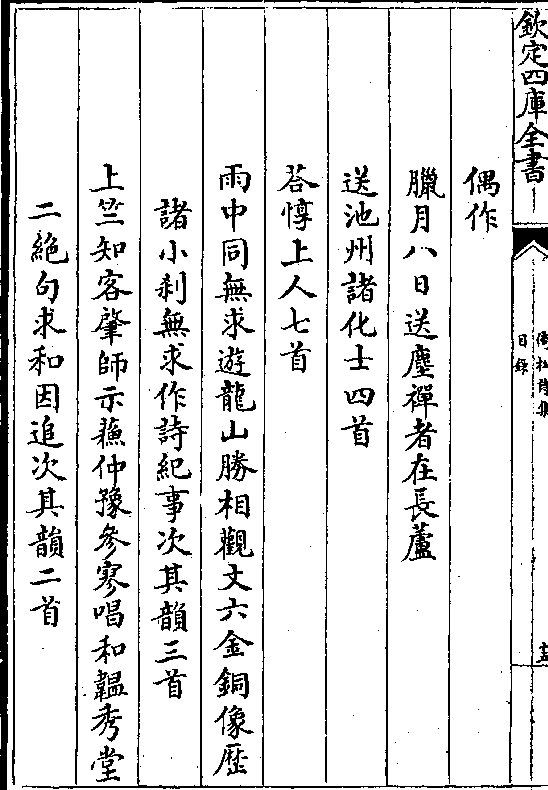 欽定四庫全書
倚松詩集
目録
偶作
臘月八日送塵禪者在長蘆
送池州諸化士四首
荅惇上人七首
雨中同無求遊龍山勝相觀文六金銅像歴
諸小刹無求作詩紀事次其韻三首
上竺知客肇師示蘓仲豫參寥唱和韞秀堂
二絶句求和因追次其韻二首